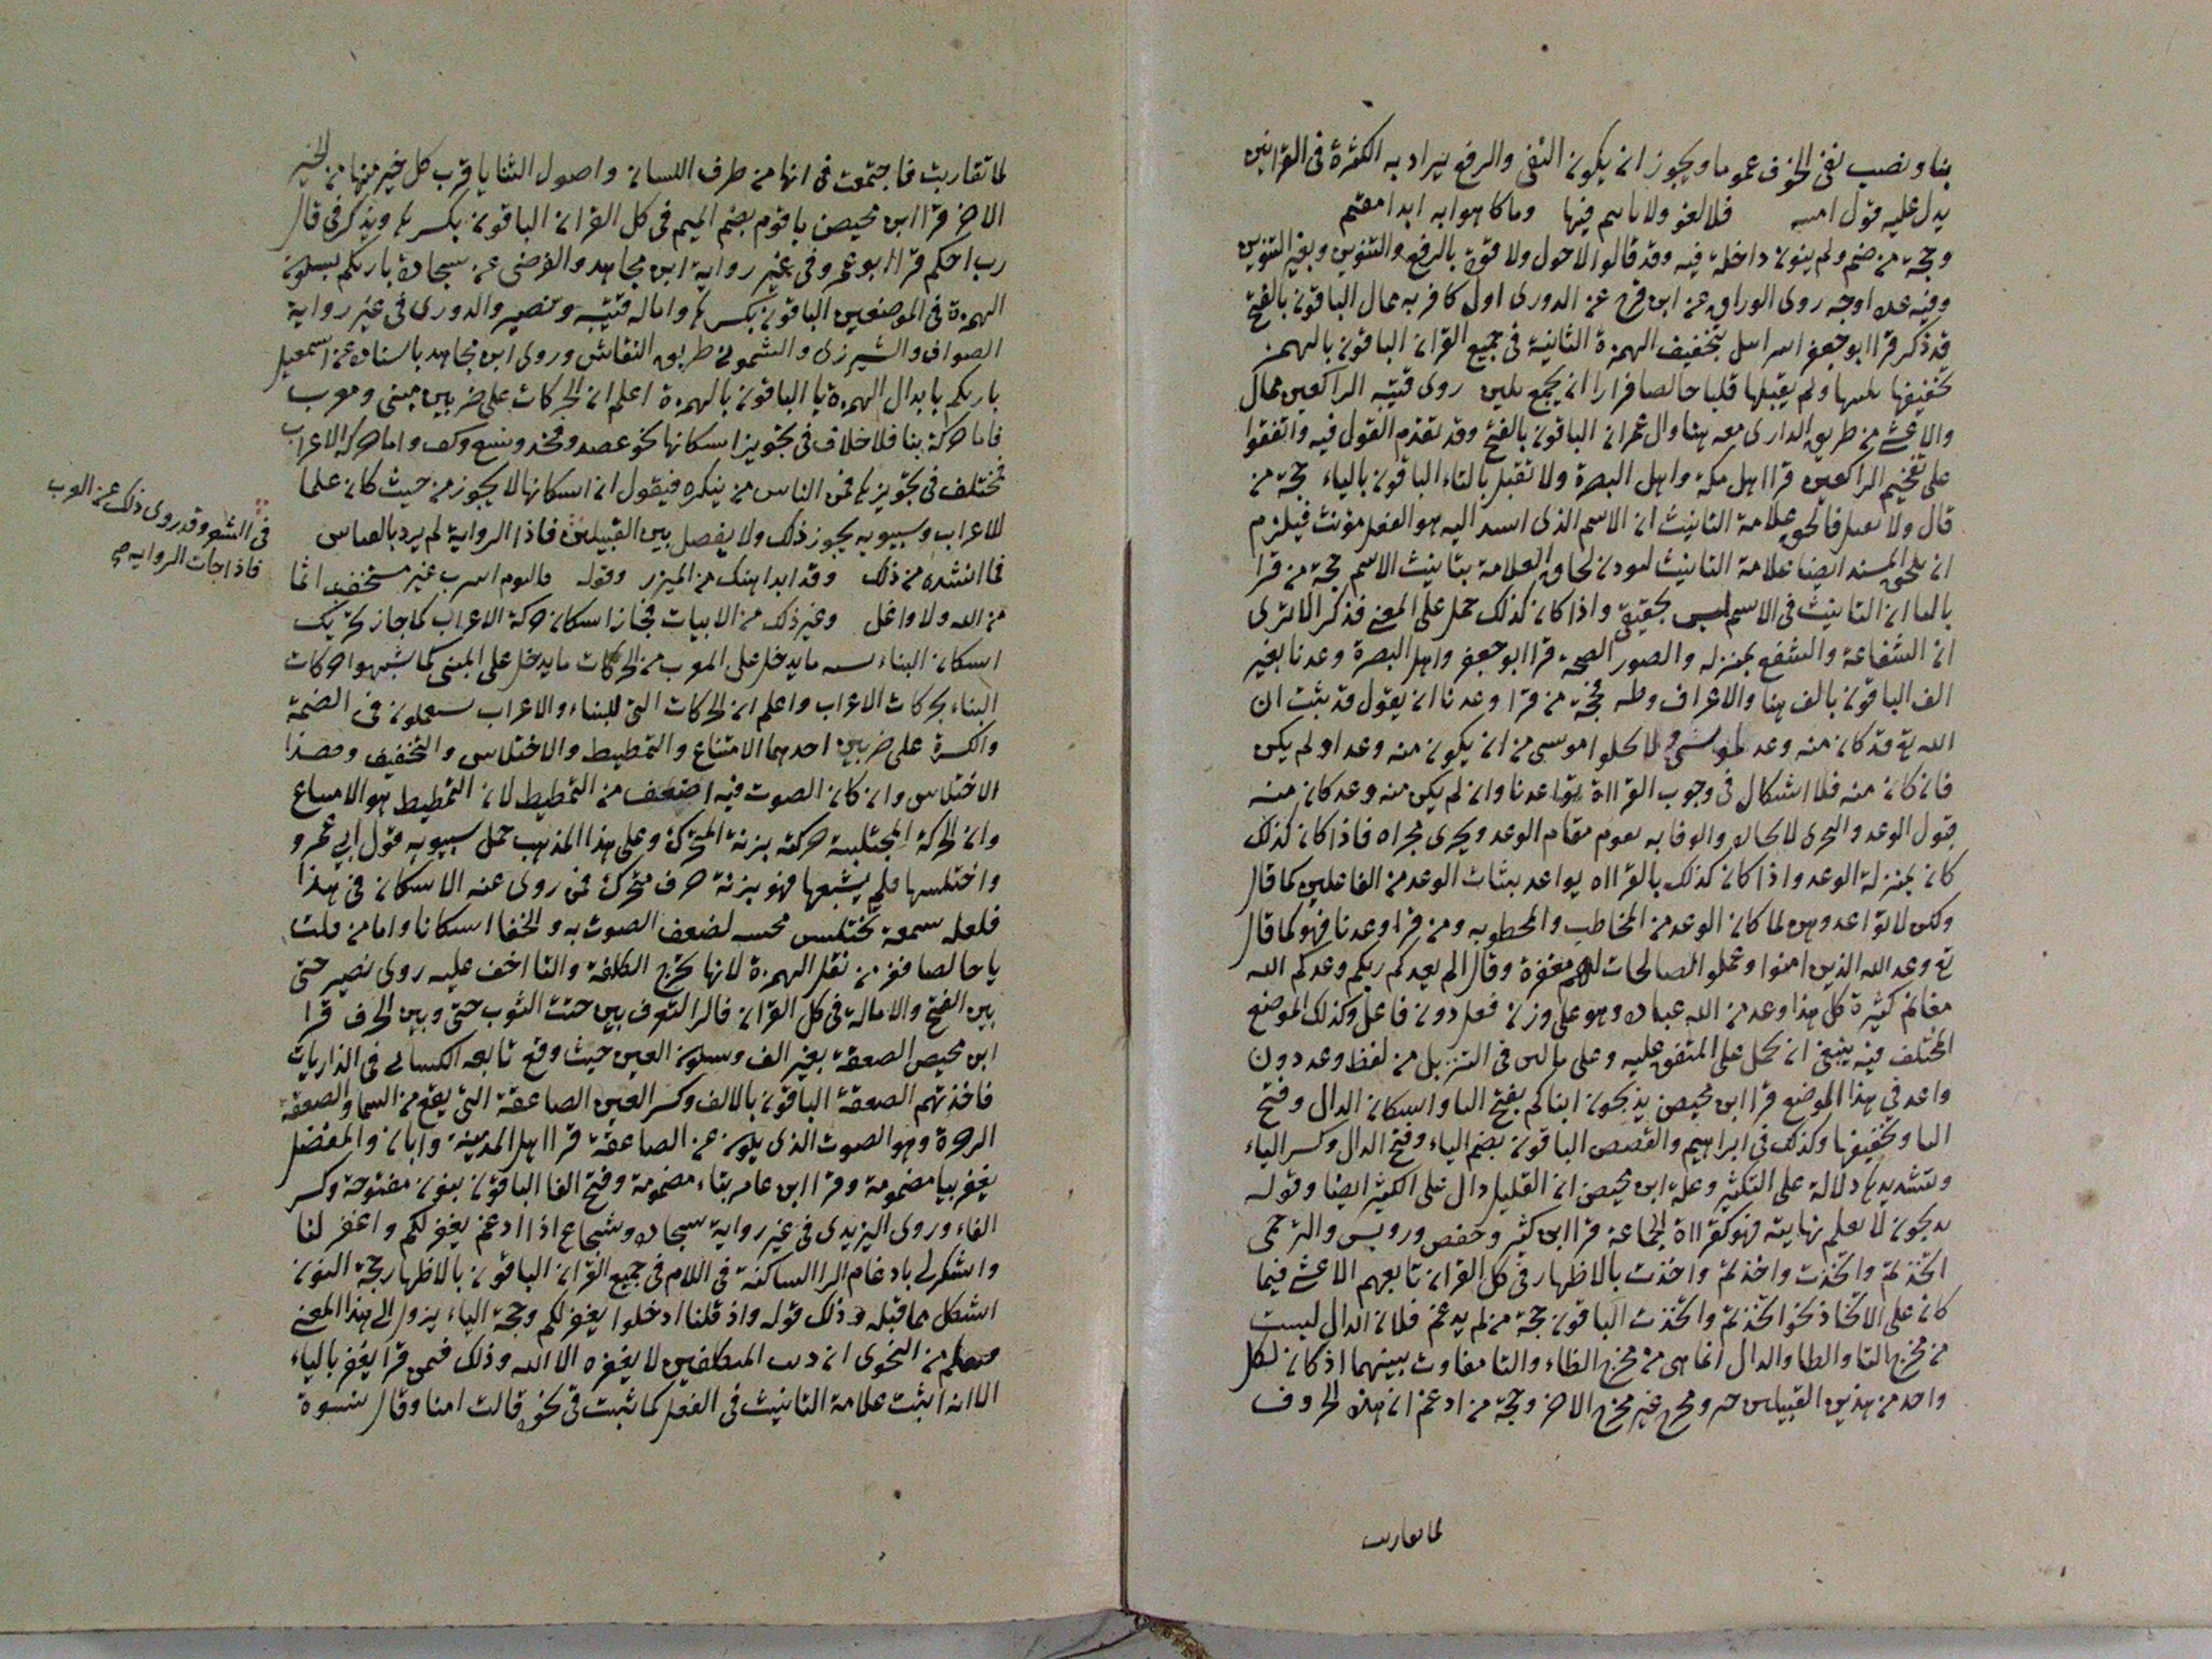 بنا ونصب نفى الخوف عموما ويجوز ان يكون النفى والرفع يراد به الكثرة فى القرائين
يدل عليه قول اميه فلا لغو ولا تاثيم فيها وما كاهوا به ابدا مقيم
وحجة من ضم ولم ينون داخلة فيه وقد قالوا لا حول ولا قوة بالرفع والتنوين وبغير التنوين
وفيه اوجه روى الوراق عن ابن فرح عن الدورى اول كافر به ممال الباقون بالفتح
قد ذكر قرا ابو جعفر اسرائيل بتخفيف الهمزة الثانية فى جميع القران الباقون بالهمز
تخفيفها ولم يقبلها قلبا خالصا فرارا ان يجمع روى قتيبه الراكعين ممال
والاعشى من طريق الدارى معه هنا وال عمران الباقون بالفتح وقد تقدم القول فيه واتفقوا
على تفخيم الراكعين قرا اهل مكة واهل البصرة ولا تقبل بالتاء الباقون بالياء حجة من
قال ولا تقبل فالحق علامة التانيث ان الاسم الذى اسند اليه هو الفعل مؤنث فيلزم
ان يلحق المسند ايضا علامة التانيث لحاق العلامة بتانيث الاسم حجة من قرا
باليا ان التانيث فى الاسم ليس بحقيقى واذا كان كذلك حمل على المعنى فذكر الا ترى
ان الشفاعة والشفع بمنزله والصور الصيحة قرا ابو جعفر واهل البصرة وعدنا بغير
الف الباقون بالف هنا والاعراف وطه فحجة من قرا وعدنا ان يقول قد ثبت ان
الله تع قد كان منه وعد لموسى ولا يخلوا موسى من ان يكون منه وعد او لم يكن
فان كان منه فلا اشكال فى وجوب القراة بواعدنا وان لم يكن منه وعد كان منه
قبول الوعد والتحرى لانجازه والوفا به يقوم مقام الوعد ويجرى مجراه فاذا كان كذلك
كان بمنزلة الوعد واذا كان كذلك بالقراه يواعد بثبات الوعد من الفاعلين كما قال
ولكن لا تواعدوهن لما كان الوعد من المخاطب والمخطوبه ومن قرا وعدنا فهو كما قال
تع وعد الله الذين امنوا وعملوا الصالحات لهم مغفرة وقال الم يعدكم ربكم وعدكم الله
مغانم كثيرة كل هذا وعد من الله عباده وهو على وزن فعل دون فاعل وكذلك الموضع
المختلف فيه ينبغى ان يحمل على المتفق عليه وعلى ما كثر فى التنزيل من لفظ وعد دون
واعد فى هذا الموضع قرا ابن محيصن يذبحون ابناكم بفتح اليا واسكان الذال وفتح
البا وتخفيفها وكذلك فى ابراهيم والقصص الباقون بضم الياء وفتح الذال وكسر الباء
وتشديدها دلالة على التكثير وعلة ابن محيصن ان القليل دال على الكثير ايضا وقوله
يذبحون لا يعلم نهايته فهو كقراة الجماعة قرا ابن كثير وحفص ورويس والبرجمى
اتخذتم واتخذت واخذتم واخذت بالاظهار فى كل القران تابعهم الاعشى فيما
كان على الاتخاذ نحو اتخذتم واتخذت الباقون حجة من لم يدغم فلان الذال ليست
من مخرج التا والطا والدال انما هى من مخرج الظاء والثا مفاوت بينهما اذ كان لكل
واحد من هذين القبيلين مخرج غير مخرج الاخر وحجة من ادغم ان هذه الحروف
لما تقاربت
لما تقاربت فاجتمعت فى انها من طرف اللسان واصول الثنايا قرب كل خير منها من الخير
الاخر قرا ابن محيصن يا قوم بضم الميم فى كل القران الباقون بكسرها ويذكر فى قال
رب احكم قرا ابو عمرو فى غير رواية ابن مجاهد والفرضى عن سجاده باريكم بسكون
الهمزة فى الموضعين الباقون بكسرها واماله قتيبه ونصير والدورى فى غير رواية
الصواف والشيرزى والشمونى طريق النقاش وروى ابن مجاهد باسناده عن اسمعيل
باريكم بابدال الهمزة يا الباقون بالهمزة اعلم ان الحركات على ضربين مبنى ومعرب
فاما حركة بنا فلا خلاف فى تجويز اسكانها نحو عضد وفخذ وسبع وكتف واما حركة الاعراب
فمختلف فى تجويزها فمن الناس من ينكره فيقول ان اسكانها لا يجوز من حيث كان علما
للاعراب وسيبويه يجوز ذلك ولا يفصل بين القبيلين فاذا الرواية لم يرد بالقياس
فى الشعر وقد روى ذلك عن العرب
فاذا جات الروايه صح
فما انشده من ذلك وقد ابدا هنك من الميزر وقوله فاليوم اشرب غير مستحقب اثما
من الله ولا واغل وغير ذلك من الابيات فجاز اسكان حركة الاعراب كما جاز تحريك
اسكان البناء ما يدخل على المعرب من الحركات ما يدخل على المبنى كما شبهوا حركات
البناء بحركات الاعراب واعلم ان الحركات التى للبناء والاعراب يستعملون فى الضمة
والكسرة على ضربين احدهما الاشباع والتمطيط والاختلاس والتخفيف وهذا
الاختلاس وان كان الصوت فيه اضعف من التمطيط لان التمطيط هو الاشباع
وان الحركة المختلسة حركته بزنة المتحركة وعلى هذا المذهب حمل سيبويه قول ابي عمرو
واختلسها فلم يشبعها فهو بزنة حرف متحرك فمن روى عنه الاسكان فى هذا
فلعله سمعه يختلس فحسبه لضعف الصوت به والخفا اسكانا واما من قلب
يا خالصا ففر من نقل الهمزة لانها تخرج الكلفة واليا اخف عليه روى نصير حتى
بين الفتح والامالة فى كل القران قال التعرف بين حتت الثوب حتى وبين الحرف قرا
ابن محيصن الصعقة بغير الف وسكون العين حيث وقع تابعه الكسائى فى الذاريات
فاخذتهم الصعقة الباقون بالالف وكسر العين الصاعقة التى يقع من السما والصعقة
الزجرة وهو الصوت الذى يكون عن الصاعقة قرا اهل المدينة وابان والمفضل
يغفر بيا مضمومة وقرا ابن عامر بتاء مضمومة وفتح الفا الباقون بنون مفتوحة وكسر
الفاء وروى اليزيدى فى غير رواية سجاده وشجاع اذا ادغم يغفر لكم واغفر لنا
واشكر لى بادغام الرا الساكنة فى اللام فى جميع القران الباقون بالاظهار حجة النون
اشكل بما قبله وذلك قوله واذ قلنا ادخلوا يغفر لكم وحجة الياء يؤول الى هذا المعنى
فيعلم من الفحوى ان ذنب المكلفين لا يغفره الا الله وذلك فيمن قرا يغفر بالياء
الا انه اثبت علامة التانيث فى الفعل كما ثبت فى نحو قالت امنا وقال نسوة